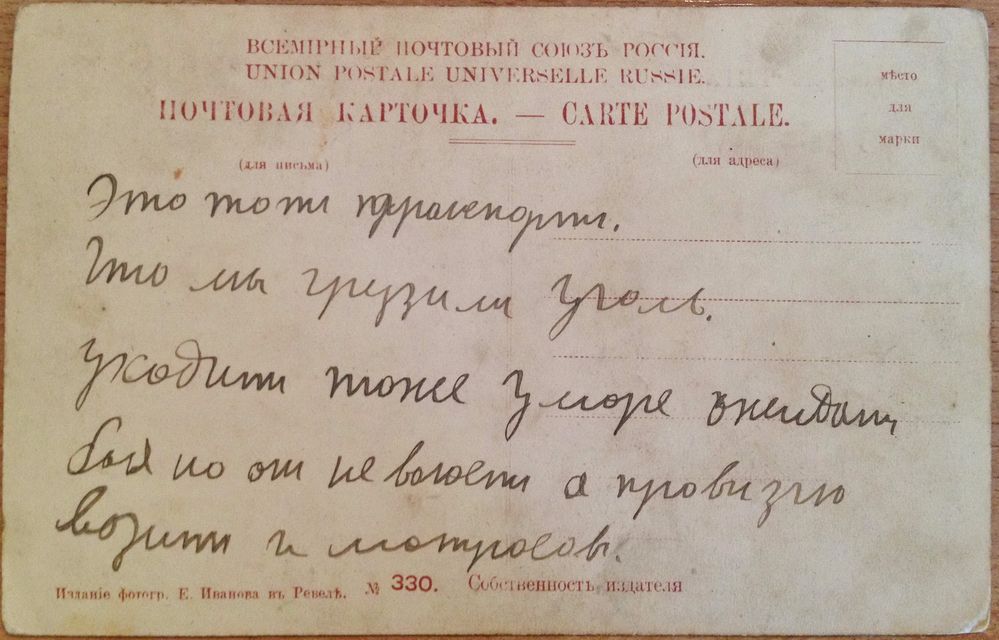 ВСЕМІРНЫЙ ПОЧТОВЫЙ СОЮЗЪ РОССІЯ.
UNION POSTALE UNIVERSELLE RUSSIE.
ПОЧТОВАЯ КАРТОЧКА. — CARTE POSTALE.
мѣсто
для
марки
(для письма)
(для адреса)
Это тоти транспорти.
Што мы грузили уголь.
уходити тоже у море ожидати
боя но он не воюети а провизію
возити и матросовъ.
Изданіе фотогр. Е. Иванова въ Ревелѣ. № 330. Собственность издателя